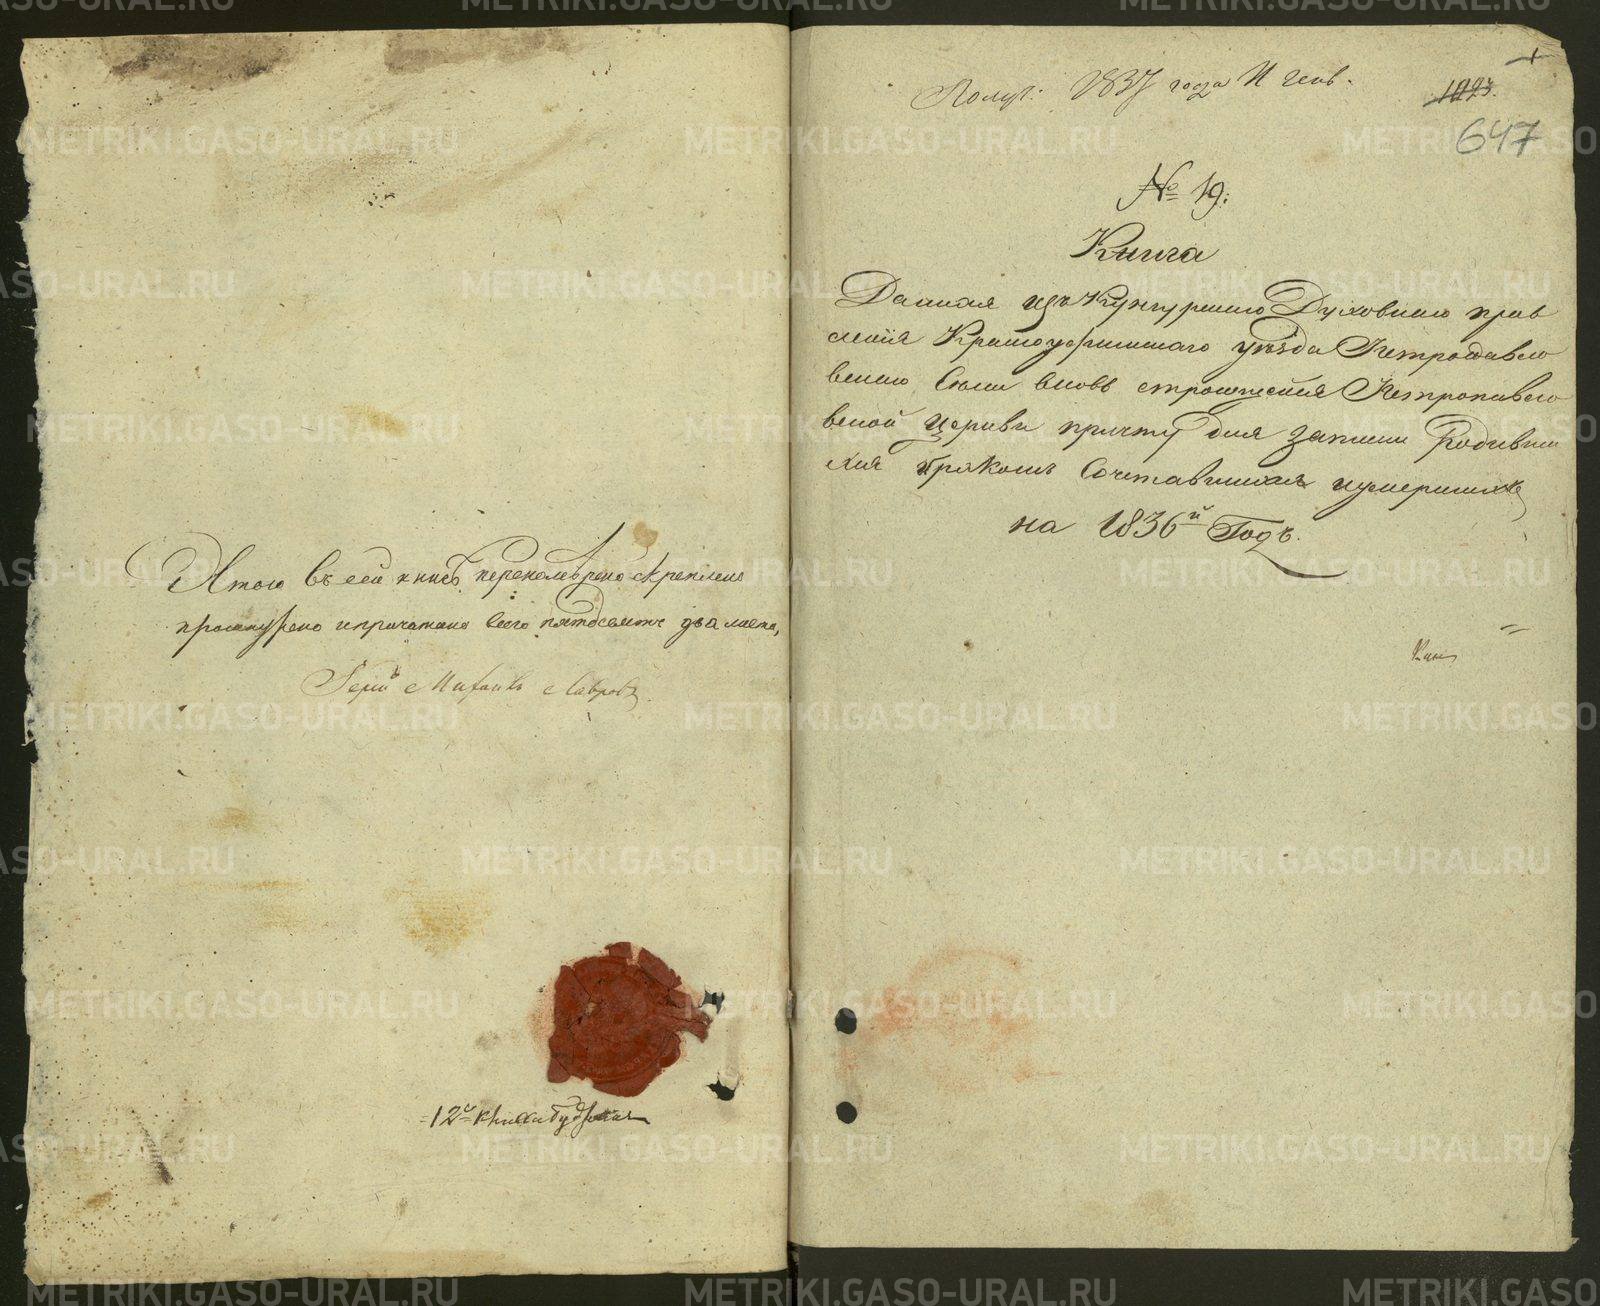 Итого въ сей книгѣ перенумеровано скреплено
прошнурено и причатано всего пятдесятъ два листа,
Іерей Михаилъ Лавровъ
Получ: 1837 года 11 генв.
1023.
647
№ 19.
Книга
Данная изъ Кунгурскаго Духовнаго прав
ленія Красноуфимскаго уѣзда Петропавло
вскаго Села вновь строющейся Петропавло
вской Церкви причту для записи Родивши
хся бракомъ Сочетавшихся и умершихъ
на 1836й Годъ.
METRIKI.GASO-URAL.RU